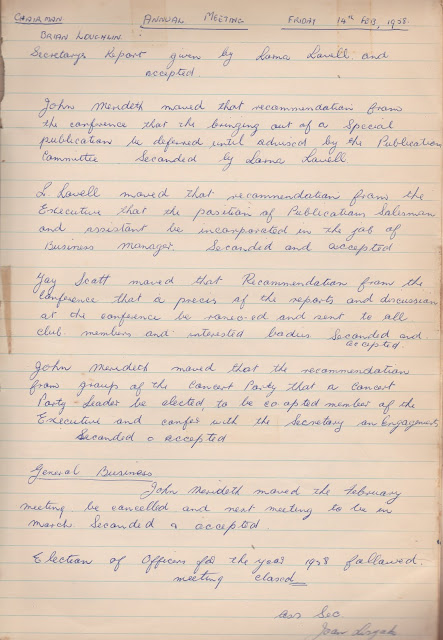 CHAIRMAN ANNUAL MEETING FRIDAY 14TH FEB, 1958.
BRIAN LOUGHLIN
Secretarys Report given by Lorna Lovell and
accepted.
John Merideth moved that recommendation from
the conference that the bringing out of a Special
publication be deferred until advised by the Publication
Committee Seconded by Lorna Lovell
L. Lovell moved that recommendation from the
Executive that the position of Publications Salesman
and assistant be incorporated in the job of
Business Manager. Seconded and accepted
Gay Scott moved that Recommendation from the
conference that a precis of the reports and discussion
at the conference be roneo-ed and sent to all
club members and interested bodies Seconded and
accepted.
John Merideth moved that the recommendation
from group of the Concert Party that a Concert
Party Leader be elected, to be co opted member of the
Executive and confer with the Secretary on Engagements
Seconded & accepted
General Business
John Merideth moved the February
meeting be cancelled and next meeting to be in
March. Seconded & accepted.
Election of Officers for the year 1958 followed.
meeting closed
ass Sec
Joan